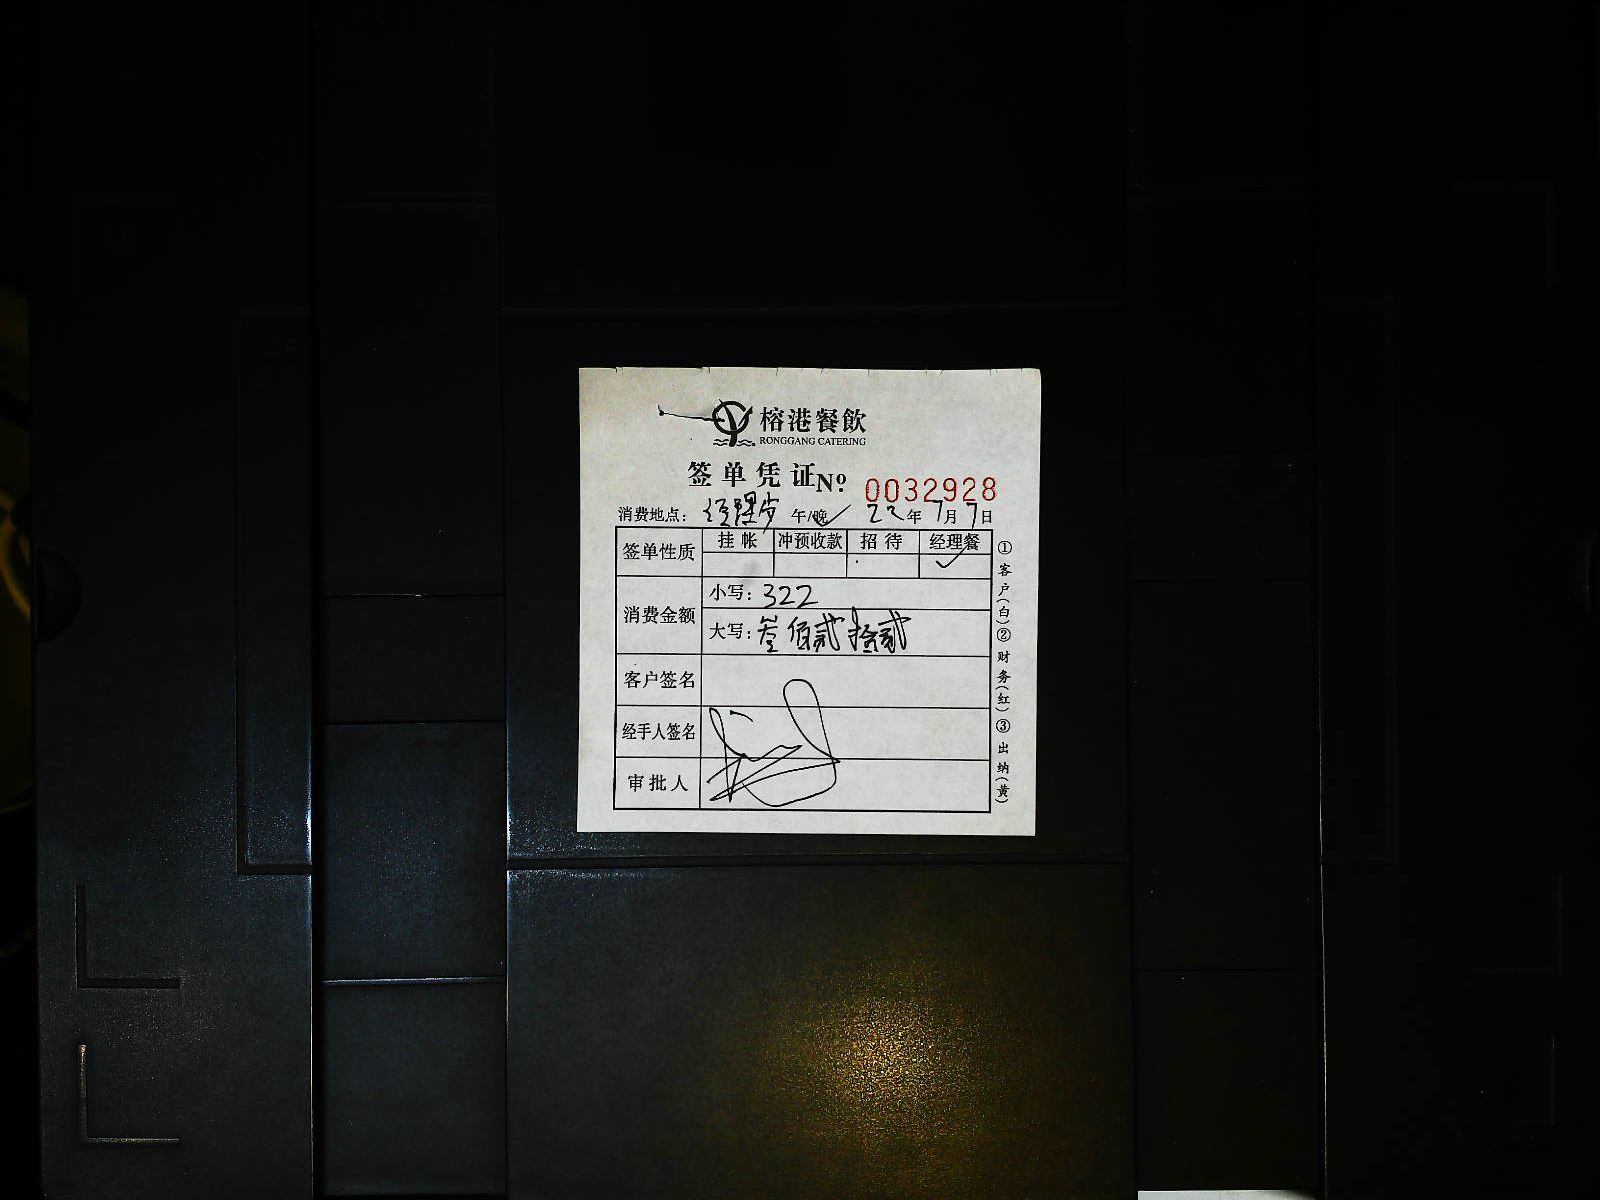 榕港餐飲
RONGGANG CATERING
签单凭证 Nº 0032928
消费地点：经理岁 午/晚 ✓ 22年7月7日
签单性质 挂帐 冲预收款 招待 经理餐
✓
消费金额 小写：322
大写：叁佰贰拾贰
客户签名
经手人签名
审批人
①客户(白)②财务(红)③出纳(黄)